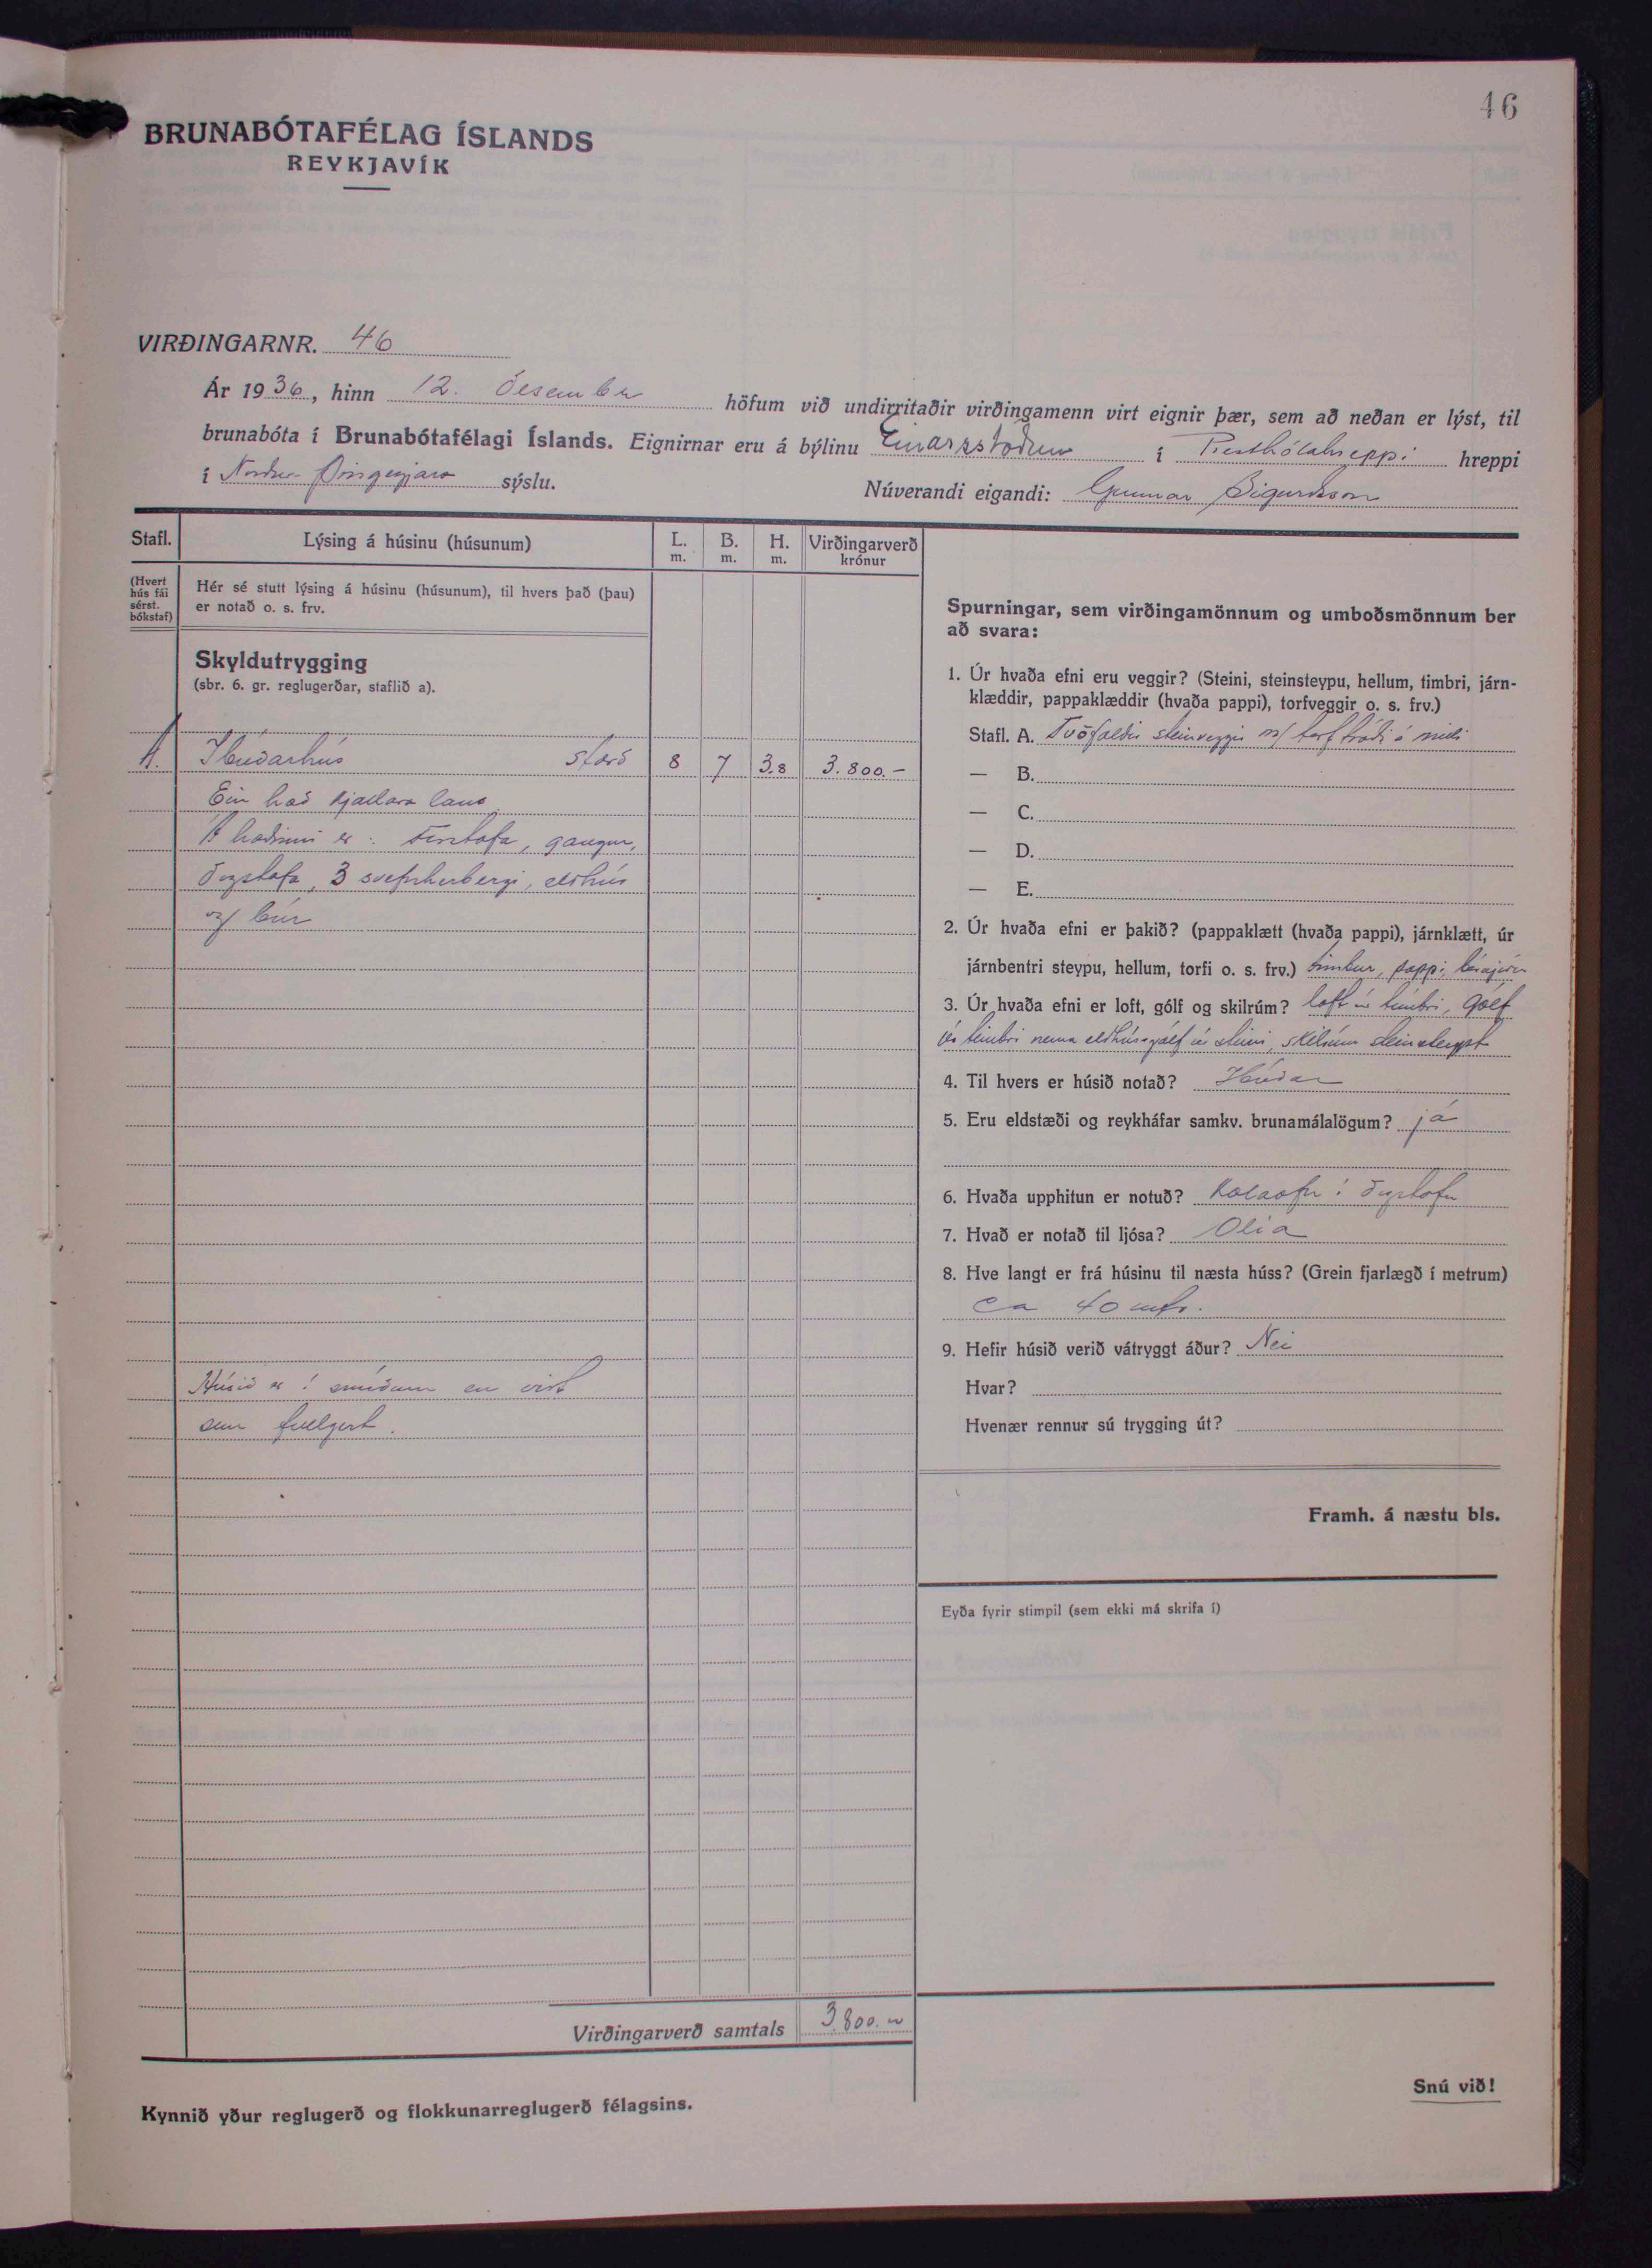 46
BRUNABÓTAFÉLAG ÍSLANDS
REYKJAVÍK
VIRÐINGARNR. 46
Ár 1936, hinn 12. Desember höfum við undirritaðir virðingamenn virt eignir þær, sem að neðan er lýst, til
brunabóta í Brunabótafélagi Íslands. Eignirnar eru á býlinu Einarsstöðum í Presthólahreppi hreppi
í Norður-Þingeyjar sýslu.
Núverandi eigandi: Gunnar Sigurðsson
Stafl. Lýsing á húsinu (húsunum) L. m. B. m. H. m. Virðingarverð krónur
(Hvert hús fái sérst. bókstaf)
Hér sé stutt lýsing á húsinu (húsunum), til hvers það (þau)
er notað o. s. frv.
Skyldutrygging
(sbr. 6. gr. reglugerðar, staflið a).
A. Íbúðarhús stærð 8 7 3.8 3.800.-
Ein hæð kjallara laus
Á hæðinni er: gangur,
dagstofa, 3 svefnherbergi, eldhús
og búr
Húsið er í smíðum en virt
sem fullgert.
Virðingarverð samtals 3.800.-
Kynnið yður reglugerð og flokkunarreglugerð félagsins.
Spurningar, sem virðingamönnum og umboðsmönnum ber
að svara:
1. Úr hvaða efni eru veggir? (Steini, steinsteypu, hellum, timbri, járn-
klæddir, pappaklæddir (hvaða pappi), torfveggir o. s. frv.)
Stafl. A. Tvöfaldir steinveggir m/ torf tróði á milli
— B.
— C.
— D.
— E.
2. Úr hvaða efni er þakið? (pappaklætt (hvaða pappi), járnklætt, úr
járnbentri steypu, hellum, torfi o. s. frv.) timbur, pappi, bárujárn
3. Úr hvaða efni er loft, gólf og skilrúm? loft úr timbri, gólf
úr timbri nema eldhúsgólf úr steini, skilrúm steinsteypt
4. Til hvers er húsið notað? Íbúðar
5. Eru eldstæði og reykháfar samkv. brunamálalögum? já
6. Hvaða upphitun er notuð? Kolaofn í dagstofu
7. Hvað er notað til ljósa? Olía
8. Hve langt er frá húsinu til næsta húss? (Grein fjarlægð í metrum)
ca 40 mtr.
9. Hefir húsið verið vátryggt áður? Nei
Hvar?
Hvenær rennur sú trygging út?
Framh. á næstu bls.
Eyða fyrir stimpil (sem ekki má skrifa í)
Snú við!